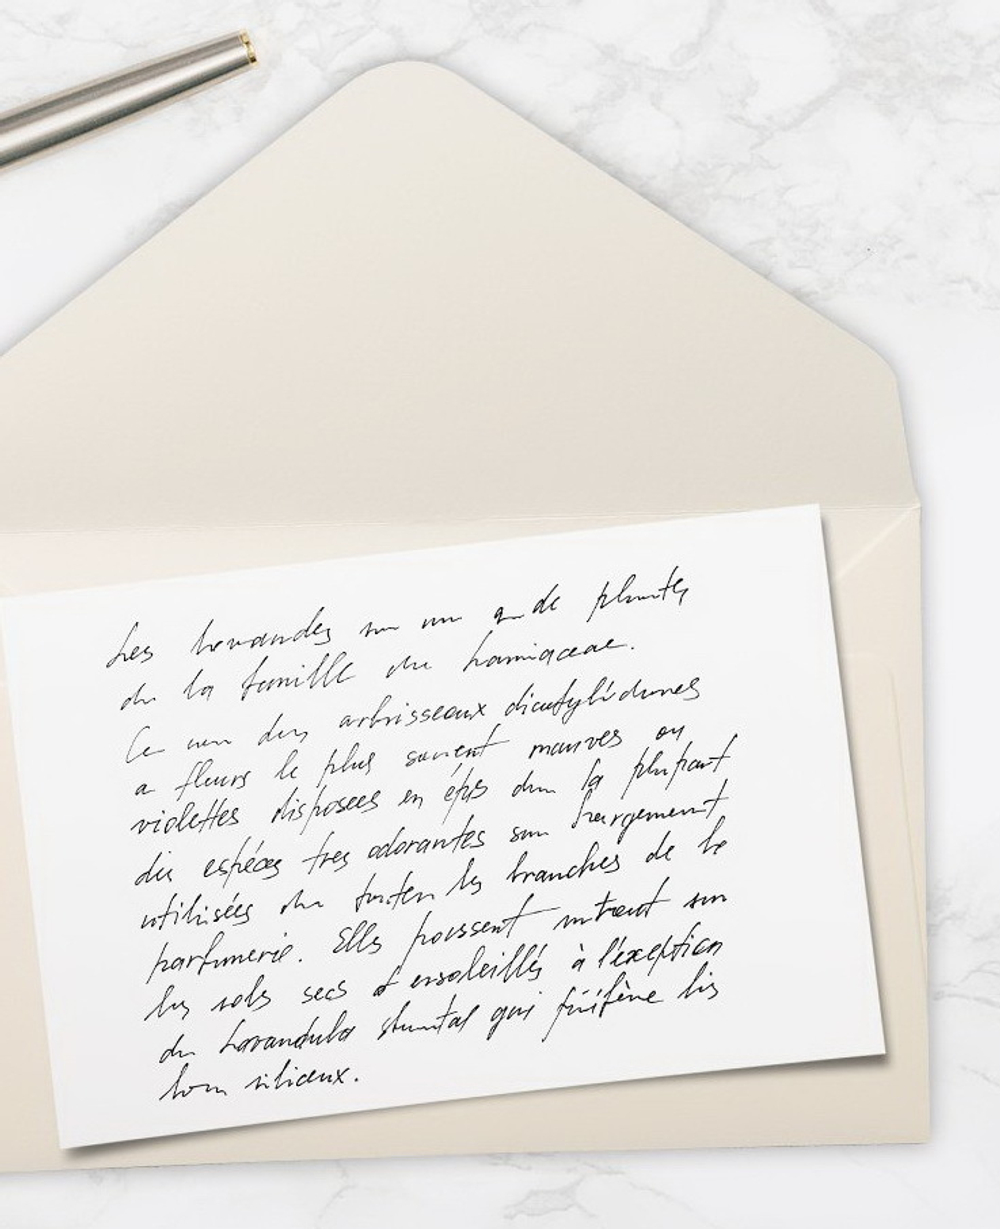 Les lavandes un de plantes
de la famille du Lamiaceae.
Ce des arbrisseaux dicotylédones
a fleurs le plus souvent mauves ou
violettes disposees en épis dans la plupart
des espéces tres odorantes sont largement
utilisées dans toutes les branches de la
parfumerie. Elles poussent surtout sur
les sols secs et ensoleillés à l'éxception
du Lavandula qui préfène les
siliceux.